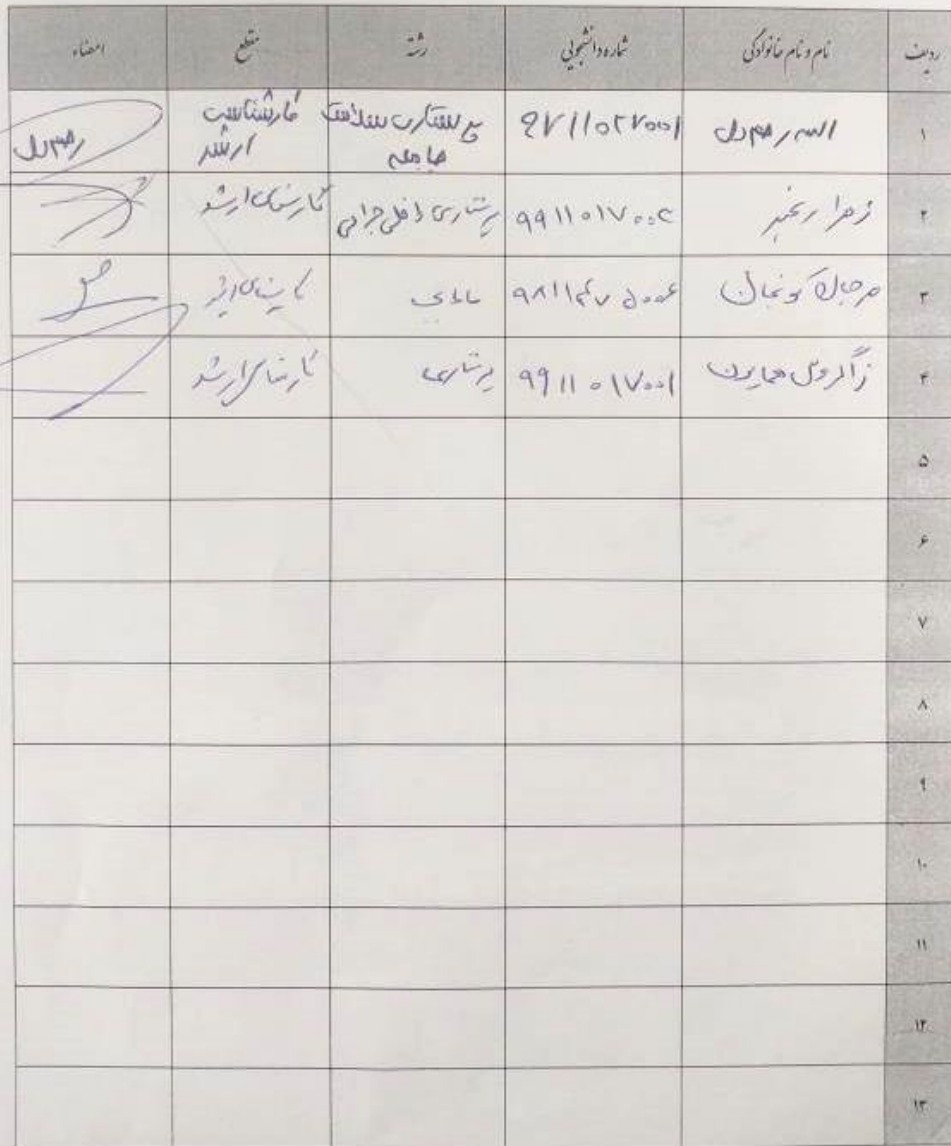 ردیف نام و نام خانوادگی شماره دانشجویی رشته مقطع امضاء
۱ رحم دل ۹۷۱۱۰۲۷۰۰۱ پرستاری سلامت کارشناسی رحم دل
جامعه ارشد
۲ زهرا رنجبر ۹۹۱۱۰۱۷۰۰۲ پرستاری داخلی جراحی کارشناسی ارشد
۳ مرجان کارشناسی ارشد
۴ زاگروس همایون ۹۹۱۱۰۱۷۰۰۱ پرستاری کارشناسی ارشد
۵
۶
۷
۸
۹
۱۰
۱۱
۱۲
۱۳